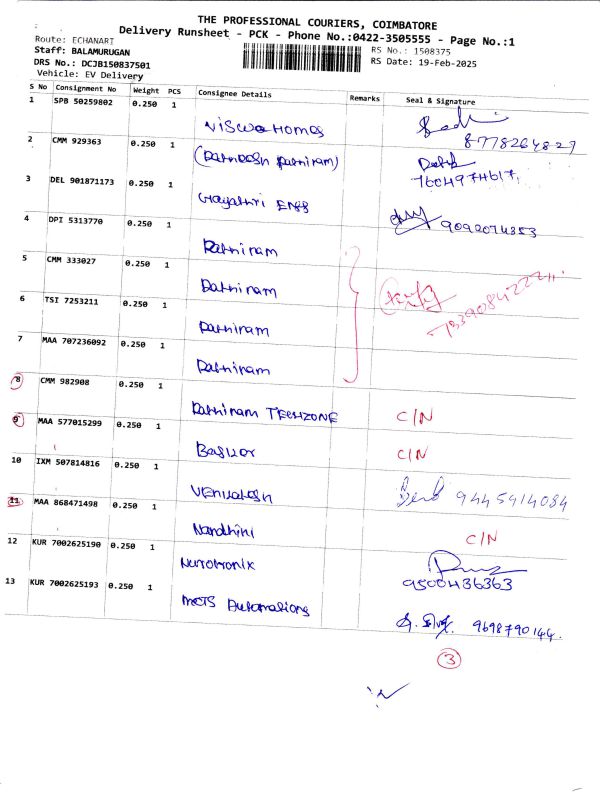 THE PROFESSIONAL COURIERS, COIMBATORE
Delivery Runsheet - PCK - Phone No.:0422-3505555 - Page No.:1
Route: ECHANARI
RS No.: 1508375
Staff: BALAMURUGAN
RS Date: 19-Feb-2025
DRS No.: DCJB150837501
Vehicle: EV Delivery
S No Consignment No Weight PCS Consignee Details Remarks Seal & Signature
1 SPB 50259802 0.250 1 Viswa Homes
8778264829
2 CMM 929363 0.250 1 (Rathinam)
7604974617
3 DEL 901871173 0.250 1 Gayathri Engg
9092074353
4 DPI 5313770 0.250 1 Rathinam
5 CMM 333027 0.250 1 Rathinam
6 TSI 7253211 0.250 1 Rathinam
7 MAA 707236092 0.250 1 Rathinam
8 CMM 982908 0.250 1 Rathinam TECHZONE C/N
9 MAA 577015299 0.250 1 Baskar C/N
10 IXM 507814816 0.250 1 Venkatesh 9445914084
11 MAA 868471498 0.250 1 Nandhini C/N
12 KUR 7002625190 0.250 1 Nurotronix
9500436363
13 KUR 7002625193 0.250 1 MCTS Automations
9698790144.
3